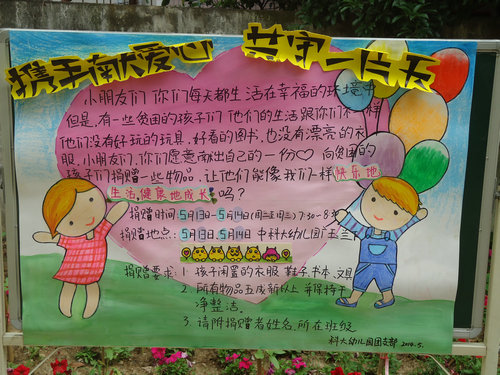 携手献大爱心 共守一片天
小朋友们 你们每天都生活在幸福的环境中
但是,有一些贫困的孩子们 他们的生活跟你们不一样
他们没有好玩的玩具,好看的图书,也没有漂亮的衣
服,小朋友们,你们愿意献出自己的一份♡ 向贫困的
孩子们捐赠一些物品,让他们能像我们一样快乐地
生活,健康地成长吗?
捐赠时间:5月13日-5月14日(周二至周三)7:30-8
捐赠地点:5月13日.5月14日 中科大幼儿园广玉兰
捐赠要求:1 孩子闲置的衣服 鞋子.书本.文具
2 所有物品五成新以上 并保持干
净整洁.
3 请附捐赠者姓名.所在班级
科大幼儿园团支部 2014.5.